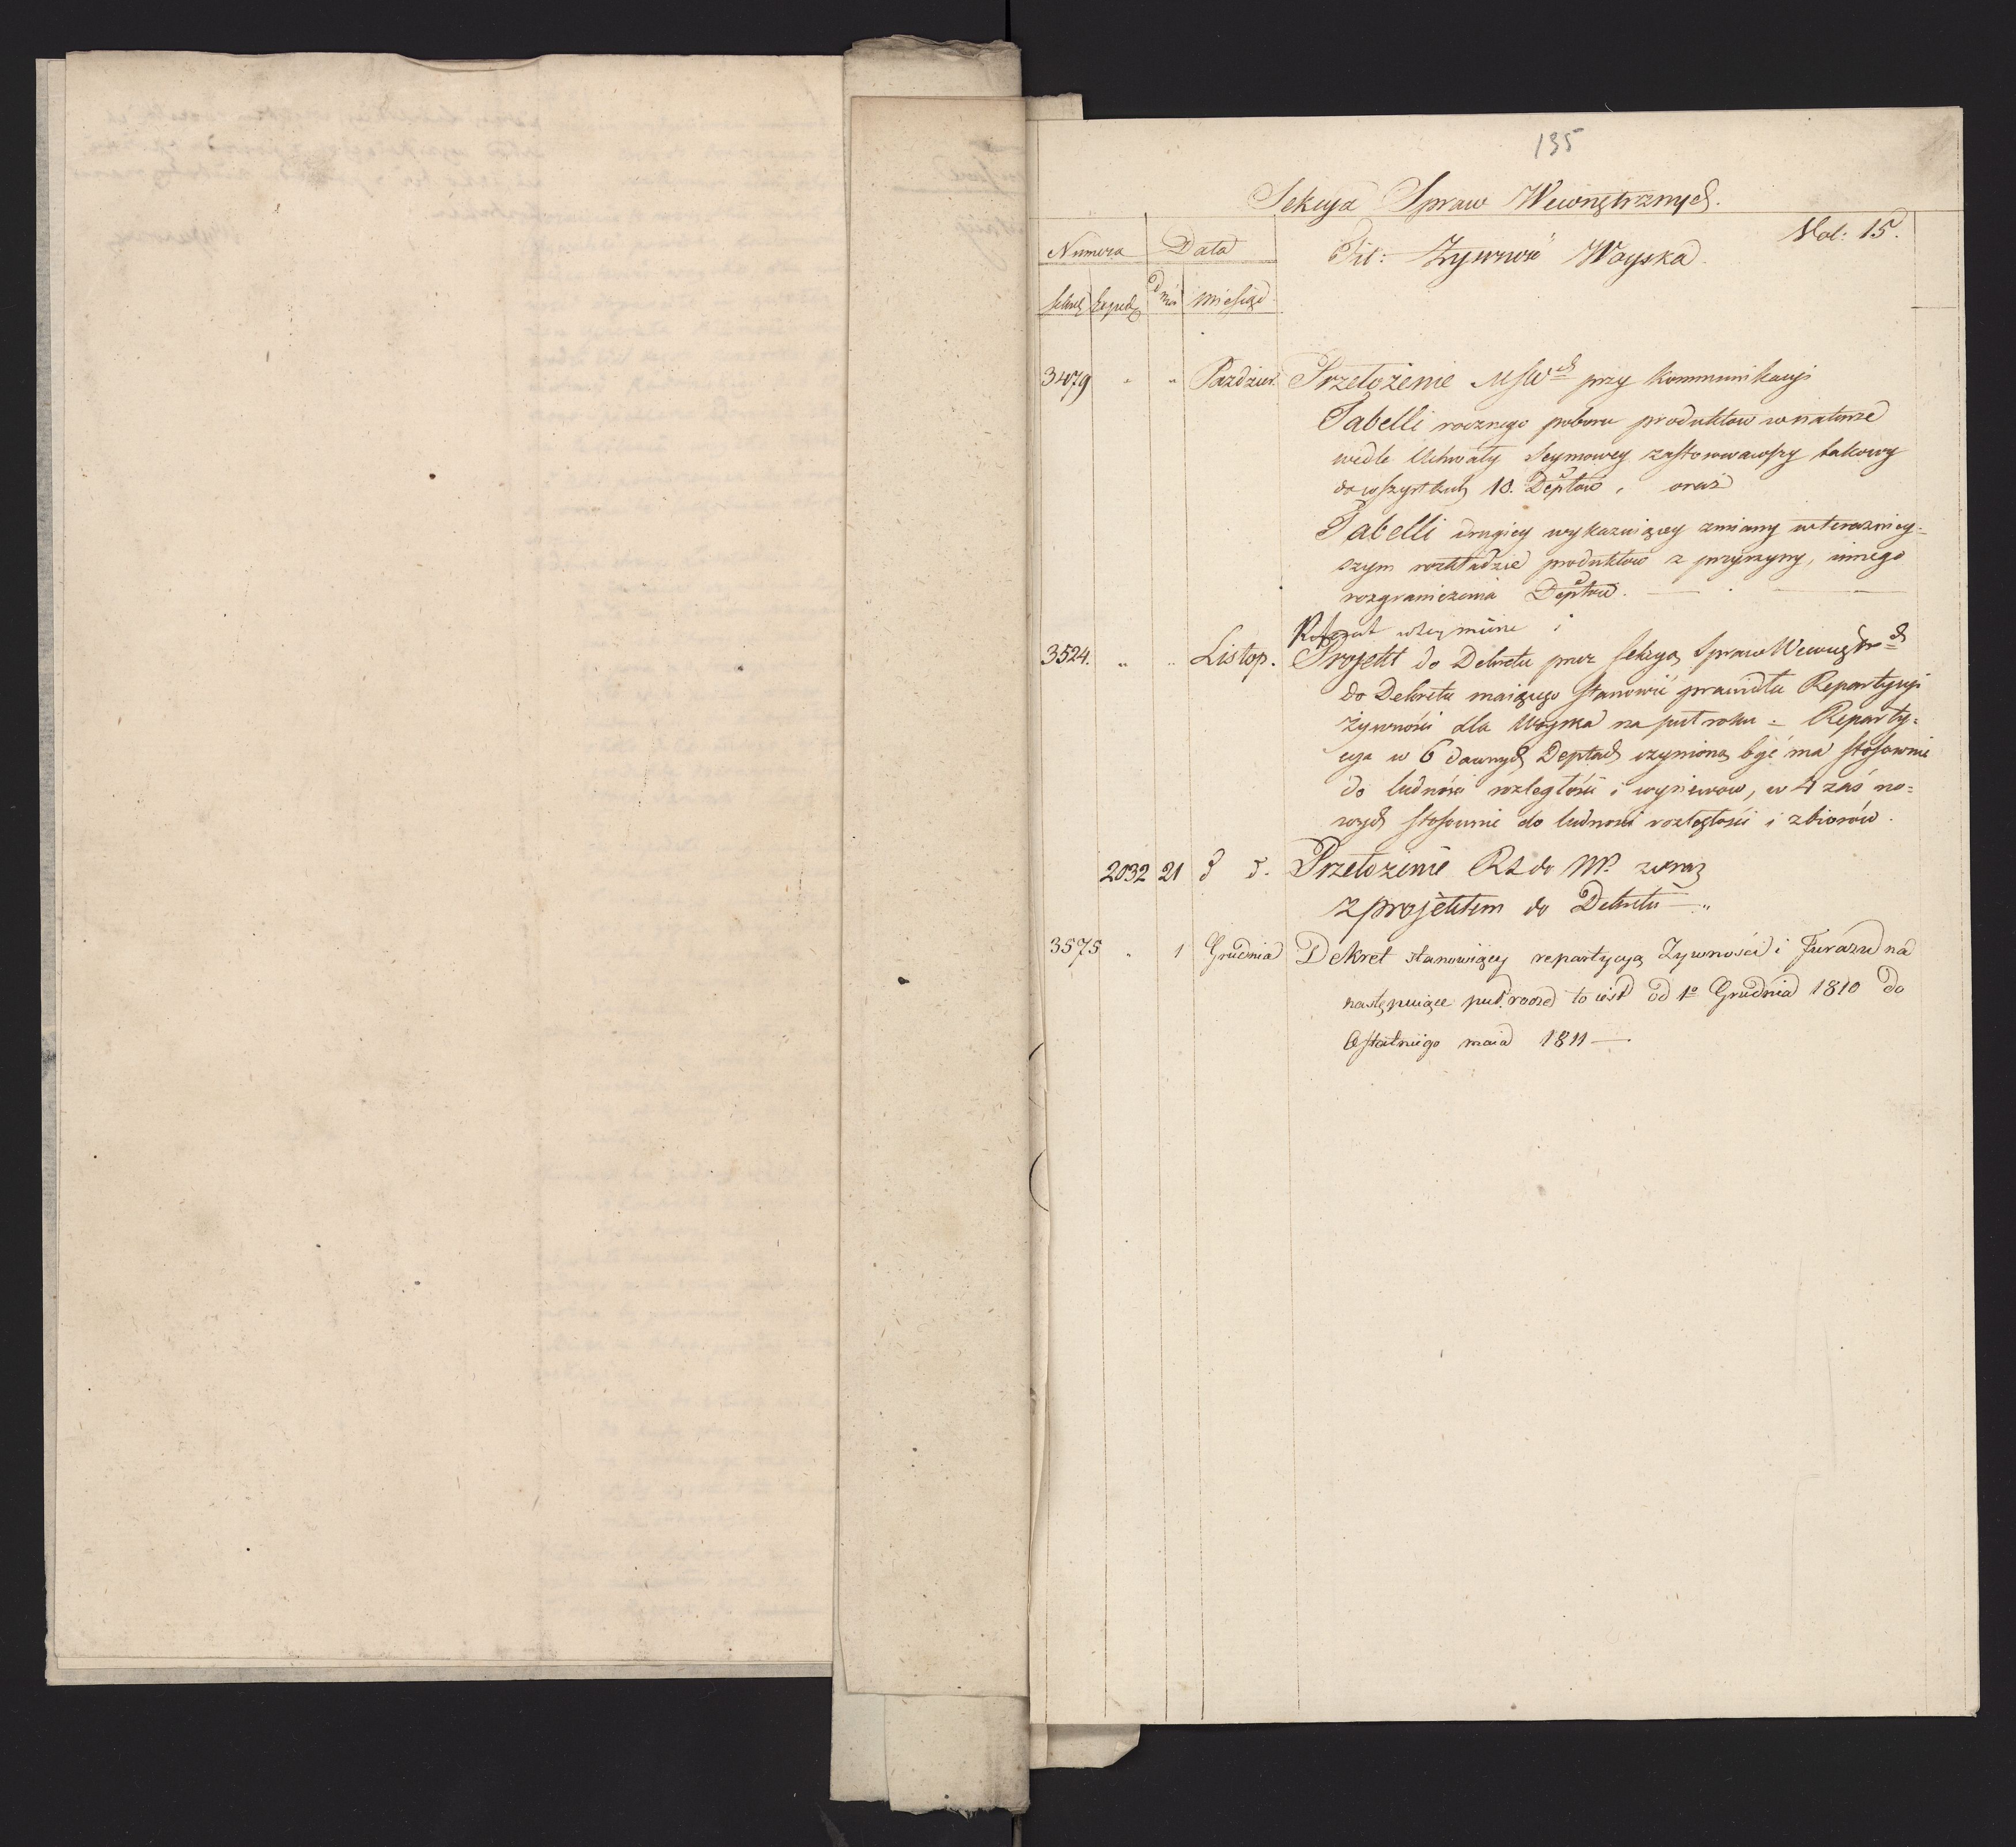 135
Sekcya Spraw Wewnętrznych.
Vol: 15.
Numera Data Tit: Żywność Woyska.
dnia miesiąc
3479 " " Paździer. Przełożenie MSWch przy kommunikacyi
Tabelli rocznego poboru produktow w naturze
wedle Uchwały Seymowey zastosowawszy takowy
do wszystkich 10. Deptów, oraz
Tabelli drugiey wykazuiącey zmiany w terazniey-
szym rozkładzie produktow z przyczyny, innego
rozgraniczenia Deptow. — . —
Referat wtey mierze i
3524. " " Listop. Projekt do Dekretu przez Sekcyą Spraw Wewnętrzch
do Dekretu maiącego stanowić prawidła Repartycyi
żywności dla Woyska na puł roku. = Reparty-
cya w 6 dawnych Deptach czyniona być ma stosownie
do ludności rozległości i wysiewow, w 4 zaś no-
wych stosownie do ludności rozległości i zbiorów.
2032 21 d d. Przełożenie RS do NP. wraz
z projektem do Dekretu — "
3575 " 1 Grudnia Dekret stanowiący repartycyą Żywności i Furażu na
następuiące pułrocze to iest od 1o Grudnia 1810 do
Ostatniego maia 1811 —